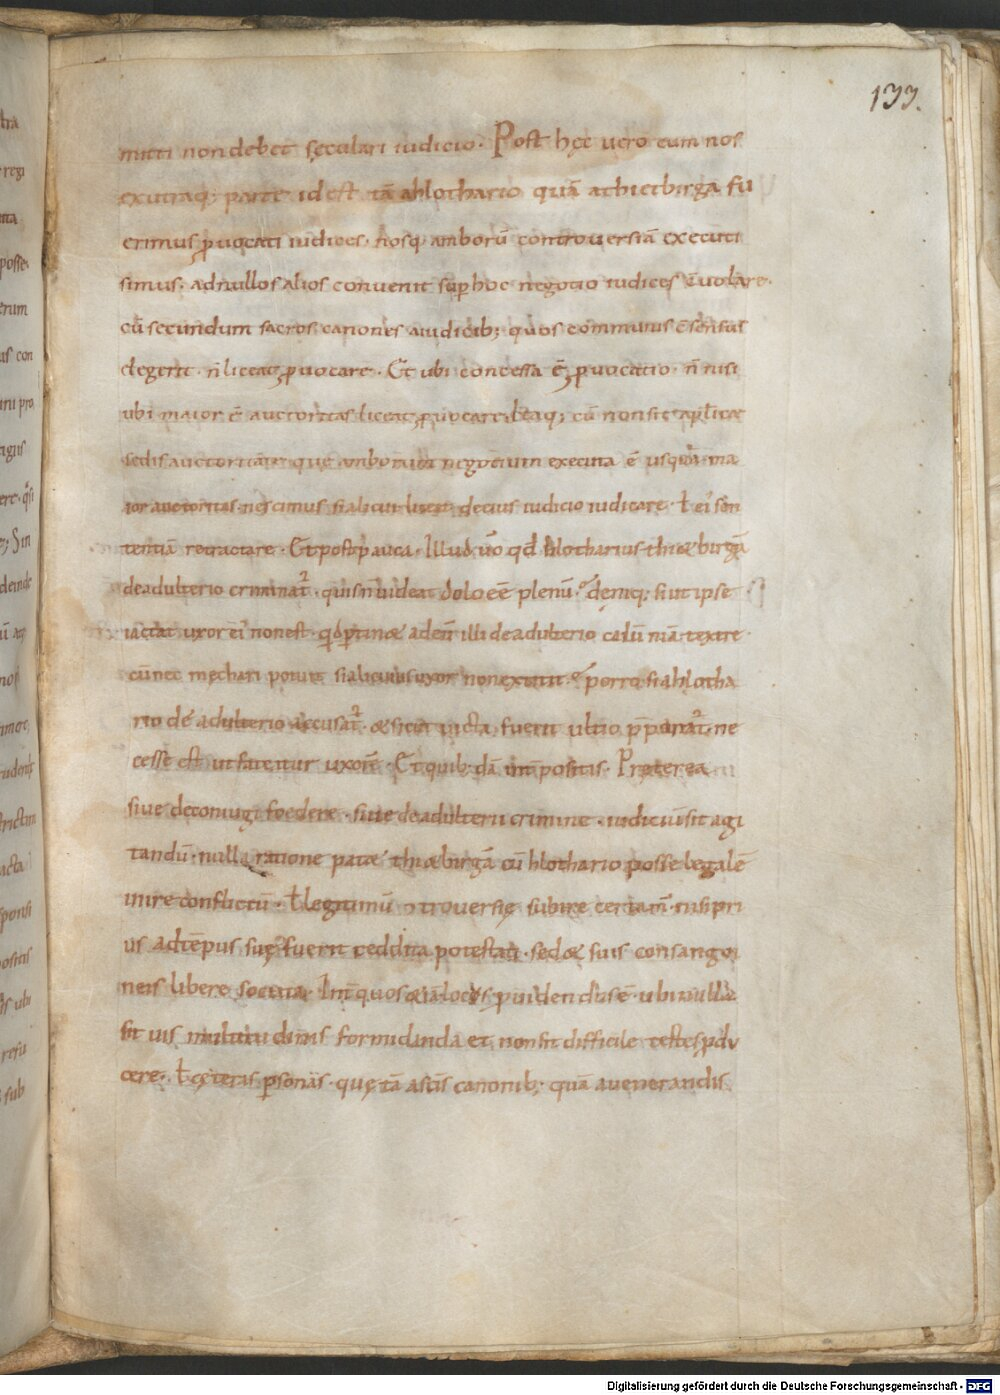 133.
mitti non debet sęculari iudicio. Post hęc uero cum nos
ex utraq; parte id est tā ab lothario quā a thietbirga fu
erimus ꝓuocati iudices. nosq; amborū controuersiā executi
simus. ad nullos alios conuenit sup hoc negocio iudices cōuolare.
cū secundum sacros canones a iudicib; quos communis cōsensus
elegerit. ñ liceat ꝓuocare. Et ubi concessa ē ꝓuocatio ñ nisi
ubi maior ē auctoritas liceat ꝓuocare. Itaq; cū non sit aplicae
sedis auctoritate quę amborum negotium executa ē usquā ma
ior auctoritas. nescimus si alicui liceat de eius iudicio iudicare. ł ei' sen
tentiā retractare. Et post pauca. Illud uo qd hlotharius thietbirgā
de adulterio criminat. quis ñ uideat dolo eē plenū. deniq; si ut ipse
iactat uxor ei' non est. qd ptinet ad eū illi de adulterio calūniā texere
cū nec męchari potuit si alicuius uxor non extitit. porro si ab lotha
rio de adulterio accusat. et sicut uicta fuerit ultio pparat. ne
cesse est ut fateatur uxorē. Et quib; dā int positis. Pręterea
siue de coniugi foedere. siue de adulterii crimine. iudiciū sit agi
tandū. nulla ratione patet thietbirgā cū hlothario posse legalē
inire conflictū. ł legitimū ꝯtrouersię subire certam. nisi pri
us ad tēpus suę fuerit reddita potestati. sed et suis consangui
neis libere sociata. Int quos et iā locus ꝓuidendus ē. ubi nulla
sit uis multitudinis formidanda et non sit difficile testes ꝓdu
cere. ł cęteras psonas. quę tā a scis canonib; quā a uenerandis